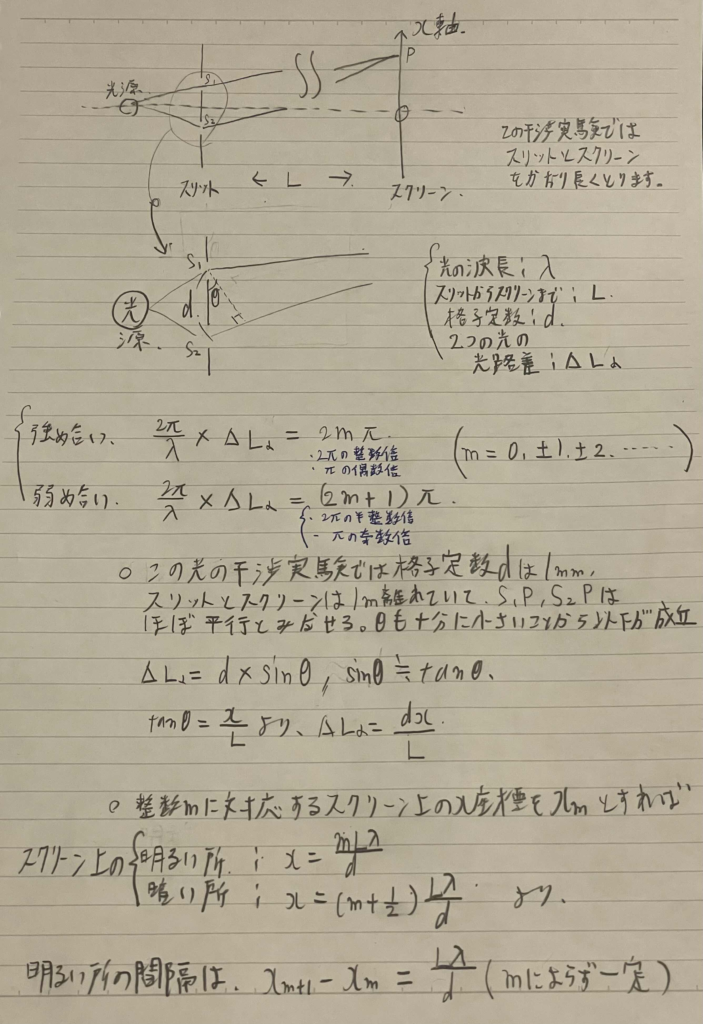 x軸
P
光源
S₁
S₂
この干渉実験では
スリットとスクリーン
をかなり長くとります。
スリット
← L →
スクリーン
S₁
θ
d
光
源
S₂
光の波長; λ
スリットからスクリーンまで; L
格子定数; d
2つの光の
光路差; ΔLα
強め合い、 2π/λ × ΔLα = 2mπ
・2πの整数倍
・πの偶数倍
(m = 0, ±1, ±2, ……)
弱め合い、 2π/λ × ΔLα = (2m+1)π.
・2πの半整数倍
・πの奇数倍
○ この光の干渉実験では格子定数dは1mm,
スリットとスクリーンは1m離れていて、S₁P, S₂Pは
ほぼ平行とみなせる。θも十分に小さいことから以下が成立
ΔLα = d×sinθ, sinθ≒tanθ、
tanθ = x/L より、ΔLα = dx/L
○ 整数mに対応するスクリーン上のx座標をxmとすれば
スクリーン上の
明るい所; x = mLλ/d
暗い所; x = (m+1/2) Lλ/d より、
明るい所の間隔は、xm+1 − xm = Lλ/d (mによらず一定)